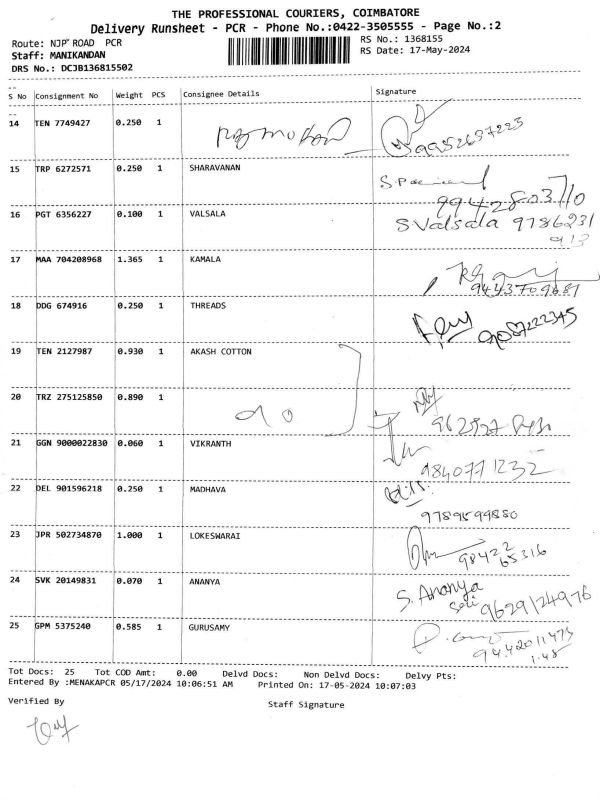 THE PROFESSIONAL COURIERS, COIMBATORE
Delivery Runsheet - PCR - Phone No.:0422-3505555 - Page No.:2
Route: NJP ROAD PCR
RS No.: 1368155
Staff: MANIKANDAN
RS Date: 17-May-2024
DRS No.: DCJB136815502
S No Consignment No Weight PCS Consignee Details Signature
14 TEN 7749427 0.250 1 Raj mohan 9952697223
15 TRP 6272571 0.250 1 SHARAVANAN
9942803710
16 PGT 6356227 0.100 1 VALSALA S Valsala 9786231
913
17 MAA 704208968 1.365 1 KAMALA
9443709681
18 DDG 674916 0.250 1 THREADS
9087222345
19 TEN 2127987 0.930 1 AKASH COTTON
20 TRZ 275125850 0.890 1 do
962527
21 GGN 9000022830 0.060 1 VIKRANTH
9840771232
22 DEL 901596218 0.250 1 MADHAVA
9789599880
23 JPR 502734870 1.000 1 LOKESWARAI
98422
65316
24 SVK 20149831 0.070 1 ANANYA S. Ananya
9629124976
25 GPM 5375240 0.585 1 GURUSAMY
9442011475
1.45
Tot Docs: 25 Tot COD Amt: 0.00 Delvd Docs: Non Delvd Docs: Delvy Pts:
Entered By :MENAKAPCR 05/17/2024 10:06:51 AM Printed On: 17-05-2024 10:07:03
Verified By
Staff Signature